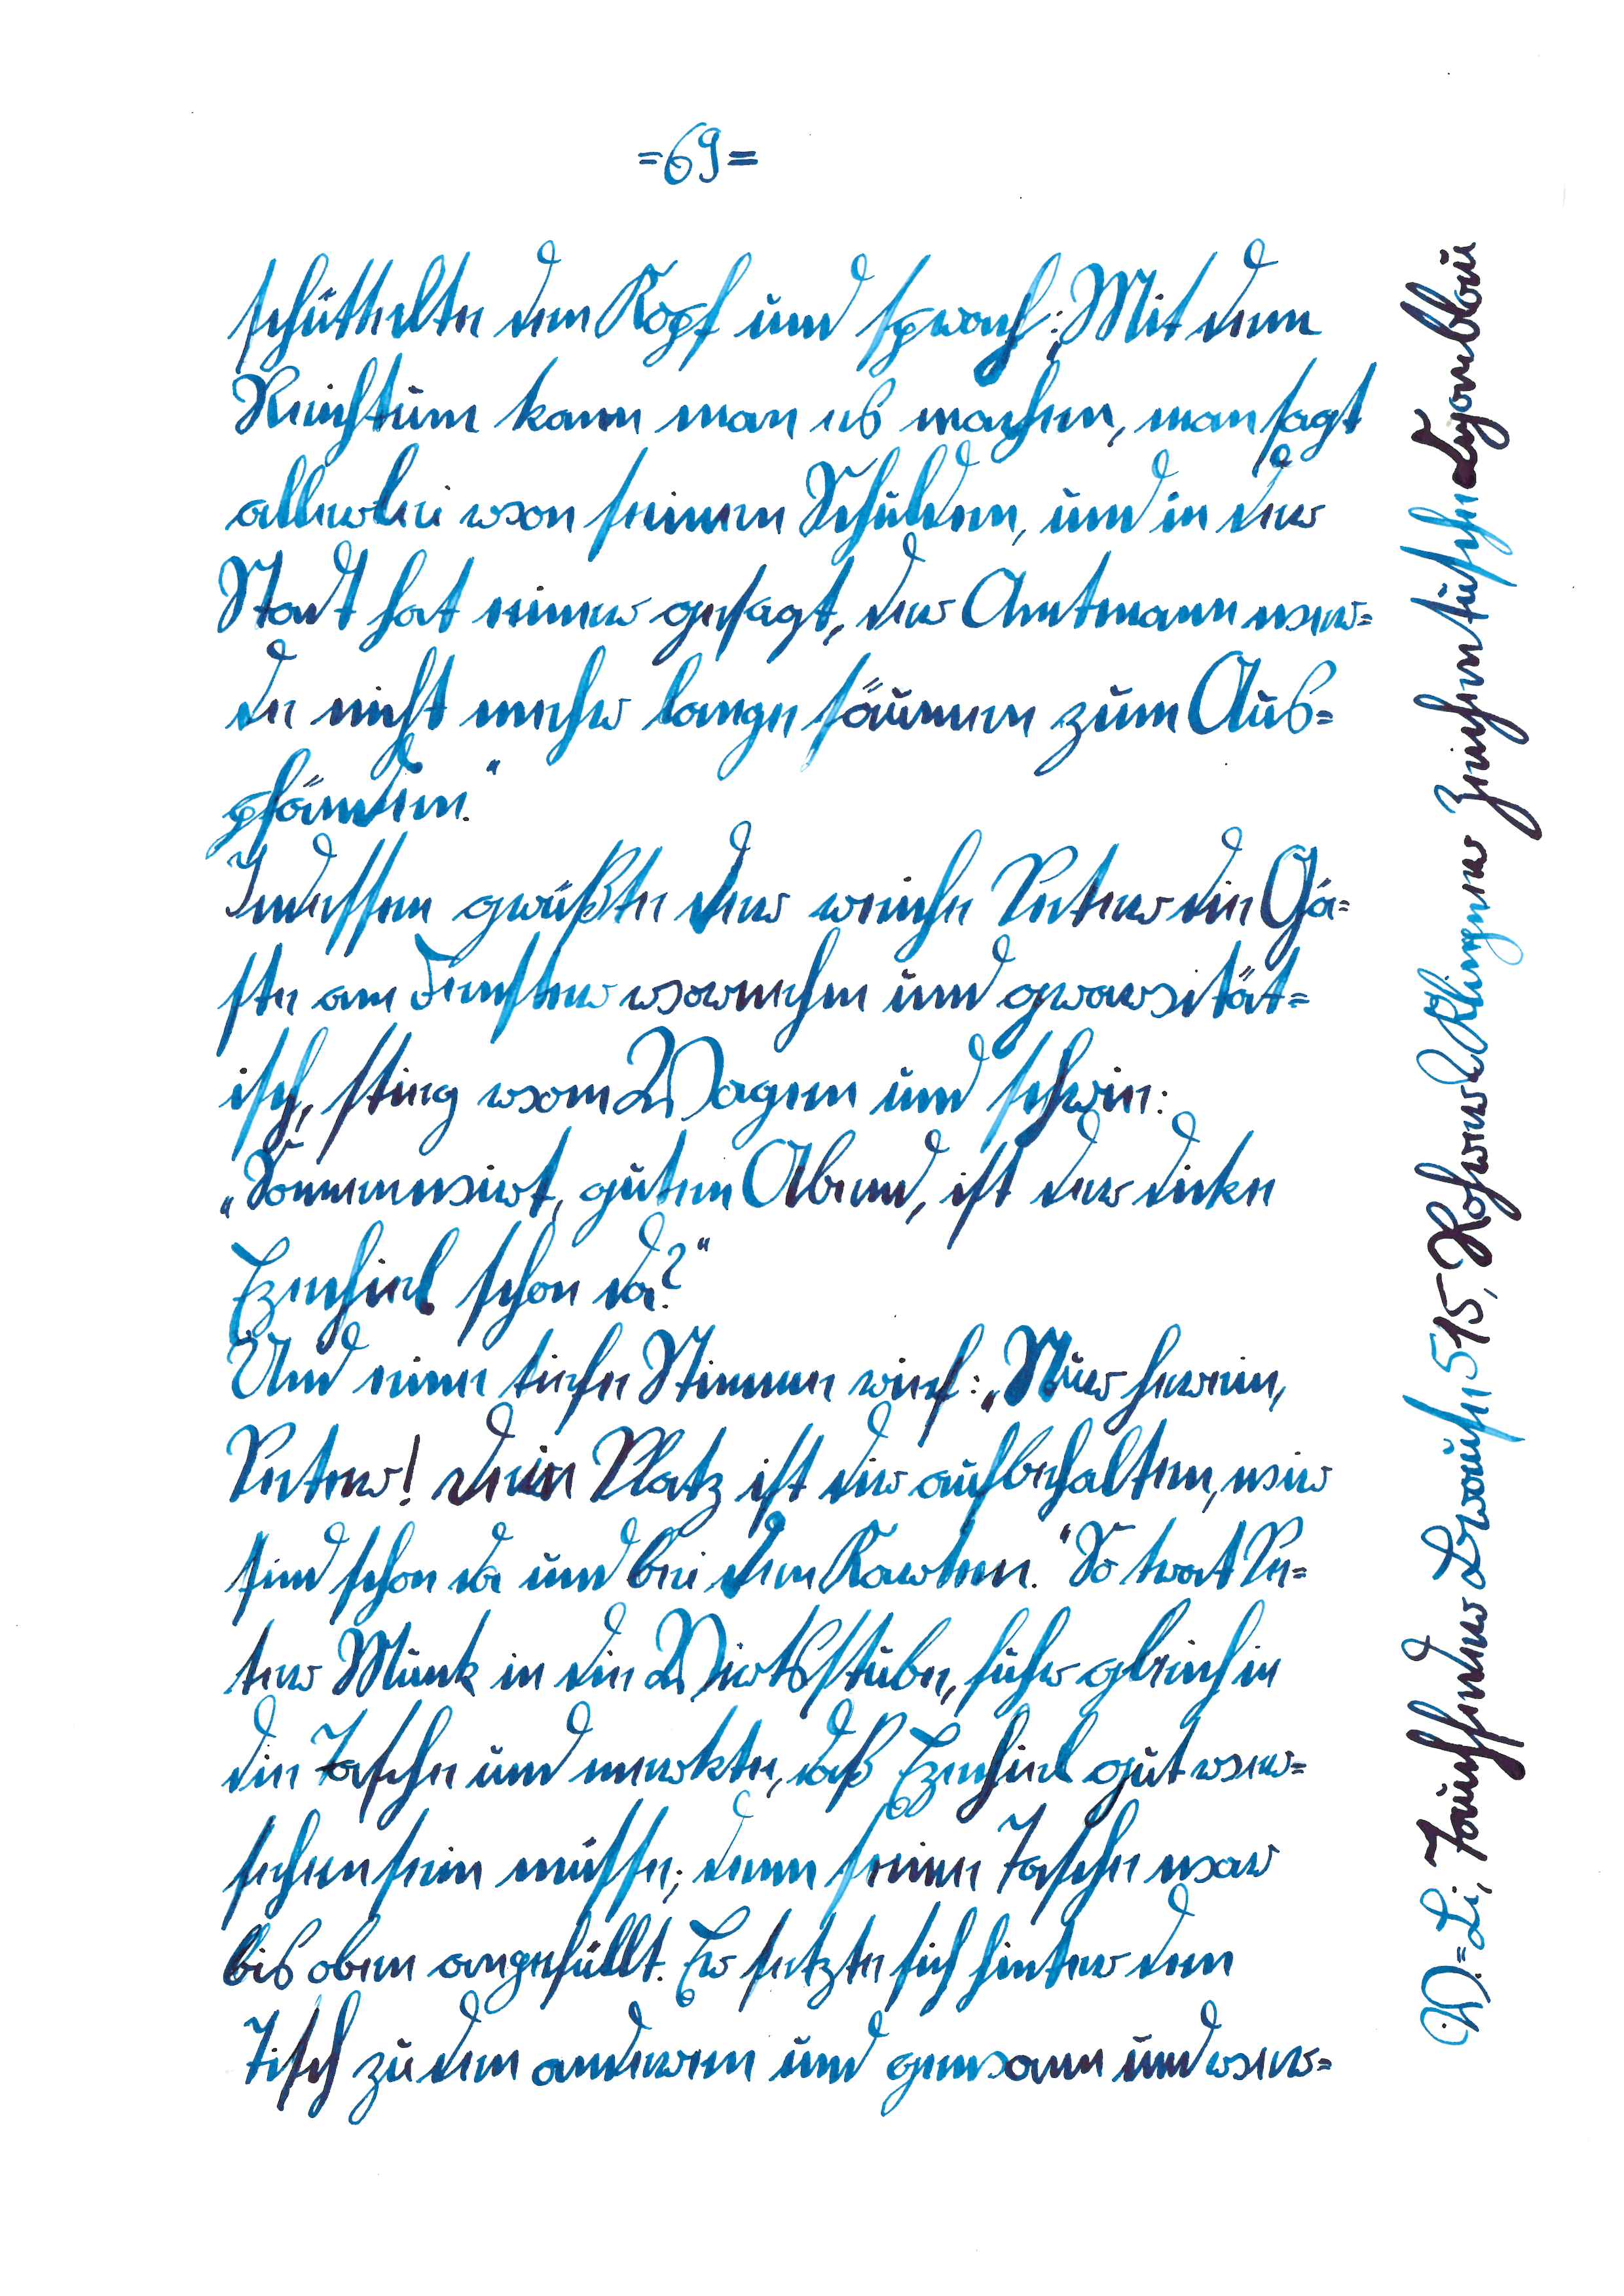 =69=
schüttelte den Kopf und sprach: „Mit dem
Reichtum kann man es machen, man sagt
allerlei von seinen Schulden, und in der
Stadt hat einer gesagt, der Amtmann wer=
de nicht mehr lange säumen zum Aus=
pfänden.“
Indessen grüßte der reiche Peter die Gä=
ste am Fenster vornehm und gravität=
isch, stieg vom Wagen und schrie:
„Sonnenwirt, guten Abend, ist der dicke
Ezechiel schon da?“
Und eine tiefe Stimme rief: „Nur herein,
Peter! Dein Platz ist dir aufbehalten, wir
sind schon da und bei den Karten.“ So trat Pe=
ter Munk in die Wirtsstube, fuhr gleich in
die Tasche und merkte, daß Ezechiel gut ver=
sehen sein müsse; denn seine Tasche war
bis oben angefüllt. Er setzte sich hinter den
Tisch zu den anderen und gewann und ver=
515, Rohrer & Klingner Zeichentusche Cyanblau